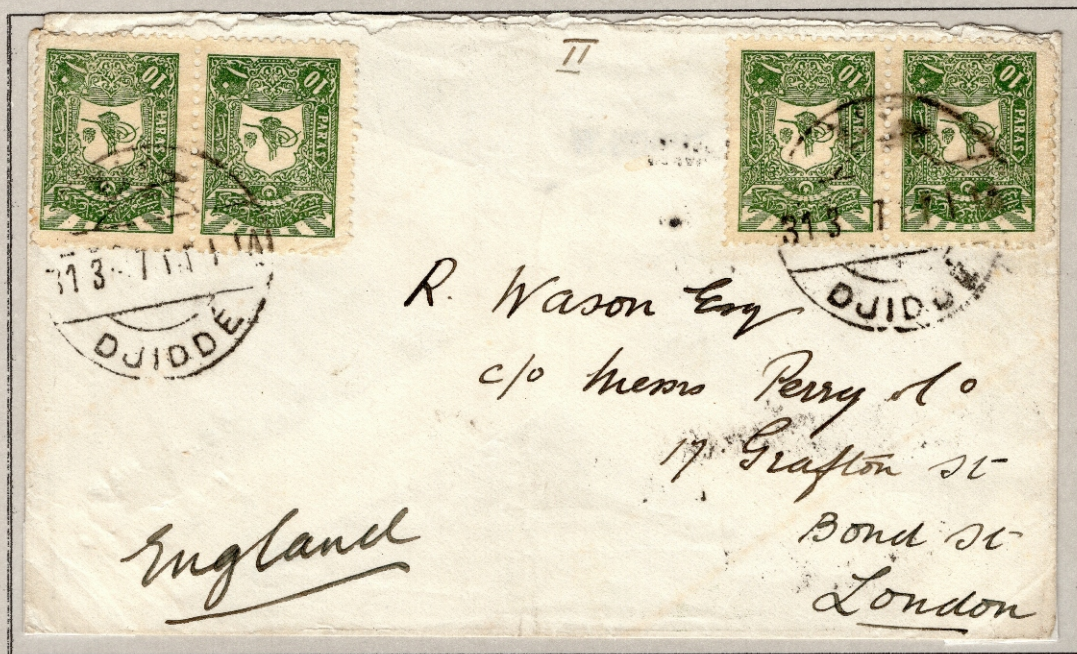 II
10 PARAS
10 PARAS
10 PARAS
10 PARAS
31 3
DJIDDE
31 3
DJIDDE
R. Wason Esq
c/o Messrs Perry & Co
17 Grafton St
Bond St
London
England